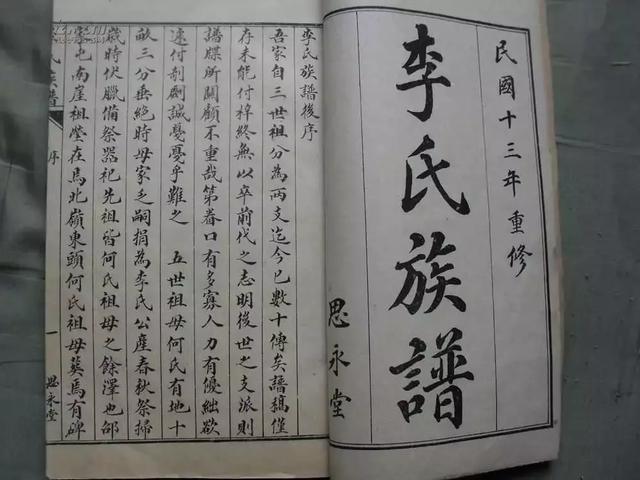 民國十三年重修
李氏族譜
思永堂
李氏族譜後序
吾家自三世祖分為兩支迄今已數十傳矣譜稿僅
存未能付梓終無以卒前代之志明後世之支派則
譜牒所關顧不重哉第眷口有多寡人力有優絀欲
速付剞劂誠憂憂乎難之 五世祖母何氏有地十
畝三分垂絕時母家乏嗣捐為李氏公產春秋祭掃
歲時伏臘備祭器祀先祖皆何氏祖母之餘澤也邰
家屯南崖祖塋在焉北嶺東頭何氏祖母葬焉有碑
氏族譜 序 一 思永堂